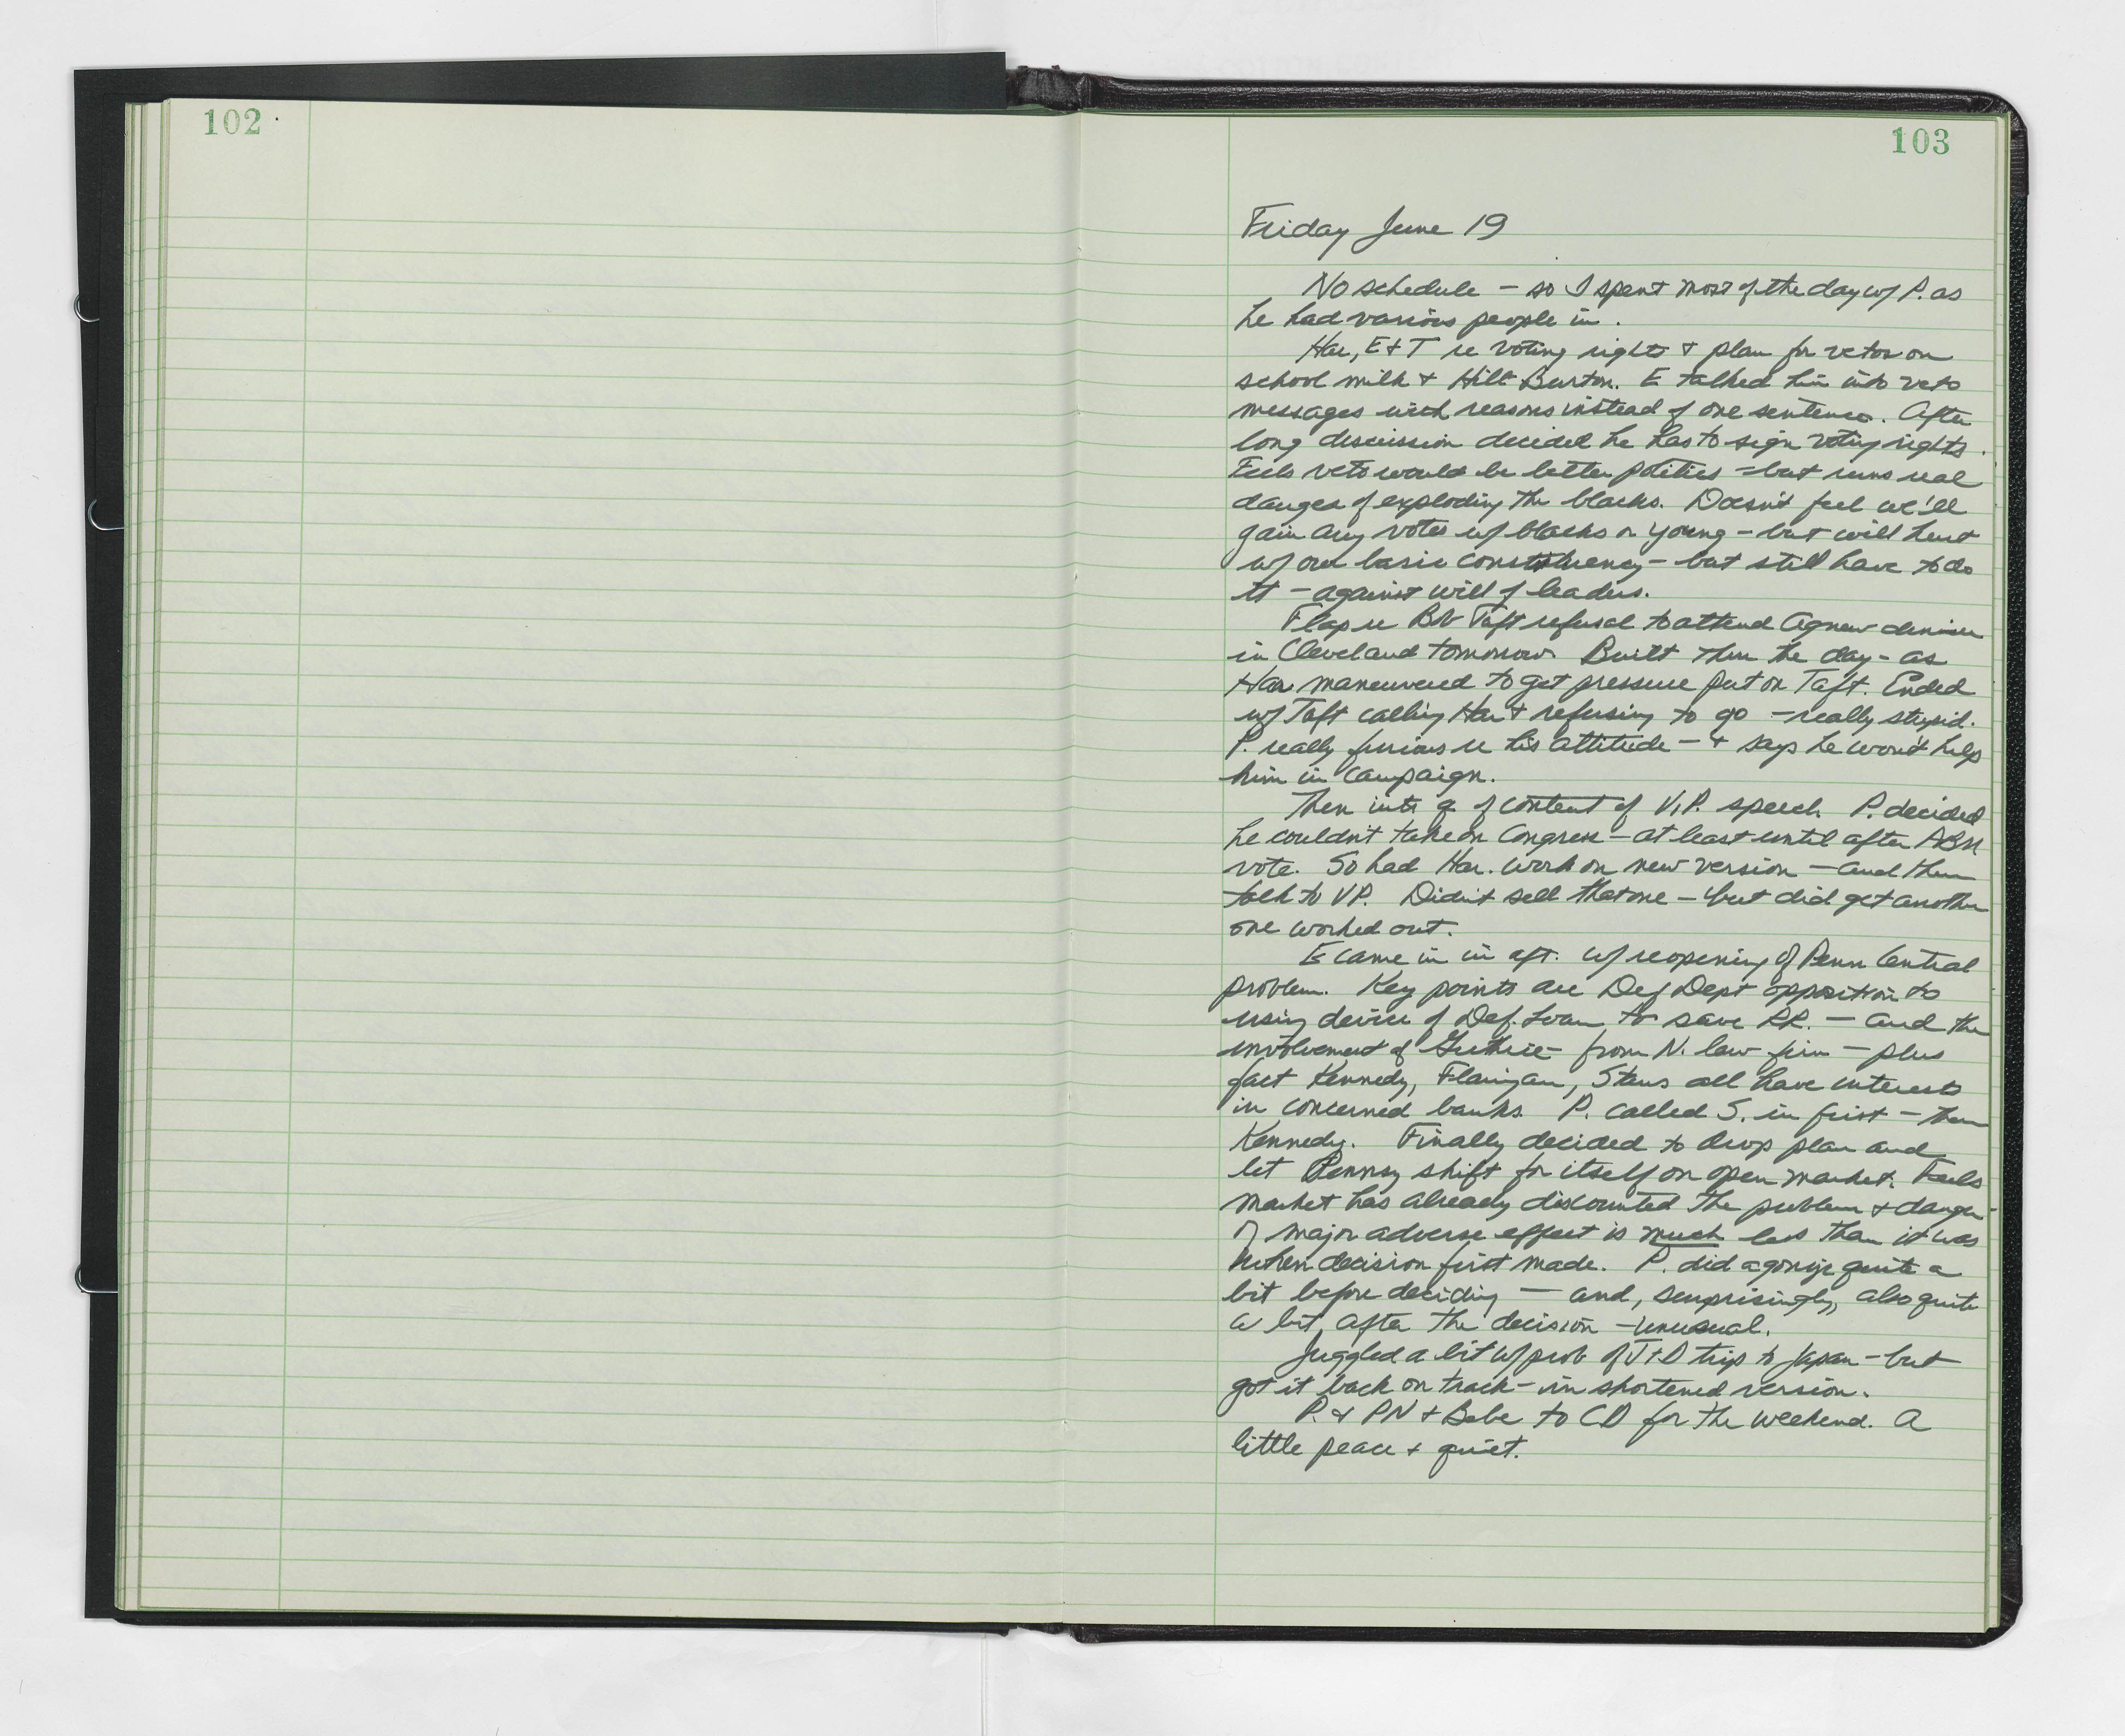 102
103
Friday June 19
No schedule – so I spent most of the day w/ P. as
he had various people in.
Har, E + T re voting rights + plan for vetos on
school milk + Hill Burton. E talked him into veto
messages with reasons instead of one sentence. After
long discussion decided he has to sign voting rights.
Feels veto would be better politics – but runs real
danger of exploding the blacks. Doesn't feel we'll
gain any votes w/ blacks or young – but will hurt
w/ our basic constituency – but still have to do
it – against will of leaders.
Flap re Bob Taft refusal to attend Agnew dinner
in Cleveland tomorrow. Built thru the day – as
Har maneuvered to get pressure put on Taft. Ended
w/ Taft calling Har + refusing to go – really stupid.
P. really furious re his attitude – + says he won't help
him in campaign.
Then into q of content of V.P. speech. P. decided
he couldn't take on Congress – at least until after ABM
vote. So had Har. work on new version – and then
talk to VP. Didn't sell that one – but did get another
one worked out.
E came in in aft. w/ reopening of Penn Central
problem. Key points are Def Dept opposition to
using device of Def. Loan to save RR. – and the
involvement of Guthrie from N. law firm – plus
fact Kennedy, Flanigan, Stans all have interests
in concerned banks. P. called S. in first – then
Kennedy. Finally decided to drop plan and
let Pennsy shift for itself on open market. Feels
market has already discounted the problem + danger
of major adverse effect is much less than it was
when decision first made. P. did agonize quite a
bit before deciding – and, surprisingly, also quite
a bit after the decision – unusual.
Juggled a bit w/ prob of J+D trip to Japan – but
got it back on track – in shortened version.
P. + PN + Bebe to CD for the weekend. A
little peace + quiet.